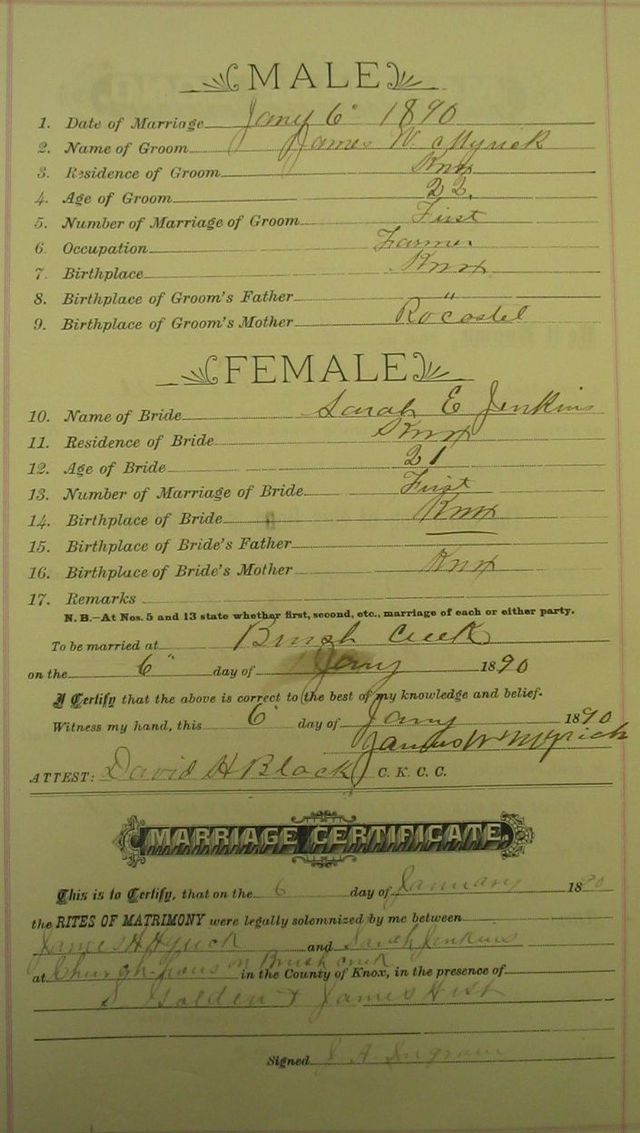 MALE
1. Date of Marriage Jany 6" 1890
2. Name of Groom James W. Myrick
3. Residence of Groom Knox
4. Age of Groom 22.
5. Number of Marriage of Groom First
6. Occupation Farmer
7. Birthplace Knox
8. Birthplace of Groom's Father "
9. Birthplace of Groom's Mother
FEMALE
10. Name of Bride Sarah E Jenkins
11. Residence of Bride Knox
12. Age of Bride 21
13. Number of Marriage of Bride First
14. Birthplace of Bride Knox
15. Birthplace of Bride's Father
16. Birthplace of Bride's Mother Knox
17. Remarks
N. B.—At Nos. 5 and 13 state whether first, second, etc., marriage of each or either party.
To be married at Brush Creek
on the 6" day of Jany 1890
I Certify that the above is correct to the best of my knowledge and belief.
Witness my hand, this 6" day of Jany 1890
James W Myrick
ATTEST: David H Black C. K. C. C.
MARRIAGE CERTIFICATE.
This is to Certify, that on the 6 day of January 1890
the RITES OF MATRIMONY were legally solemnized by me between
James and Sarah Jenkins
at on Brush creek in the County of Knox, in the presence of
S Golden + James
Signed J A Ingram